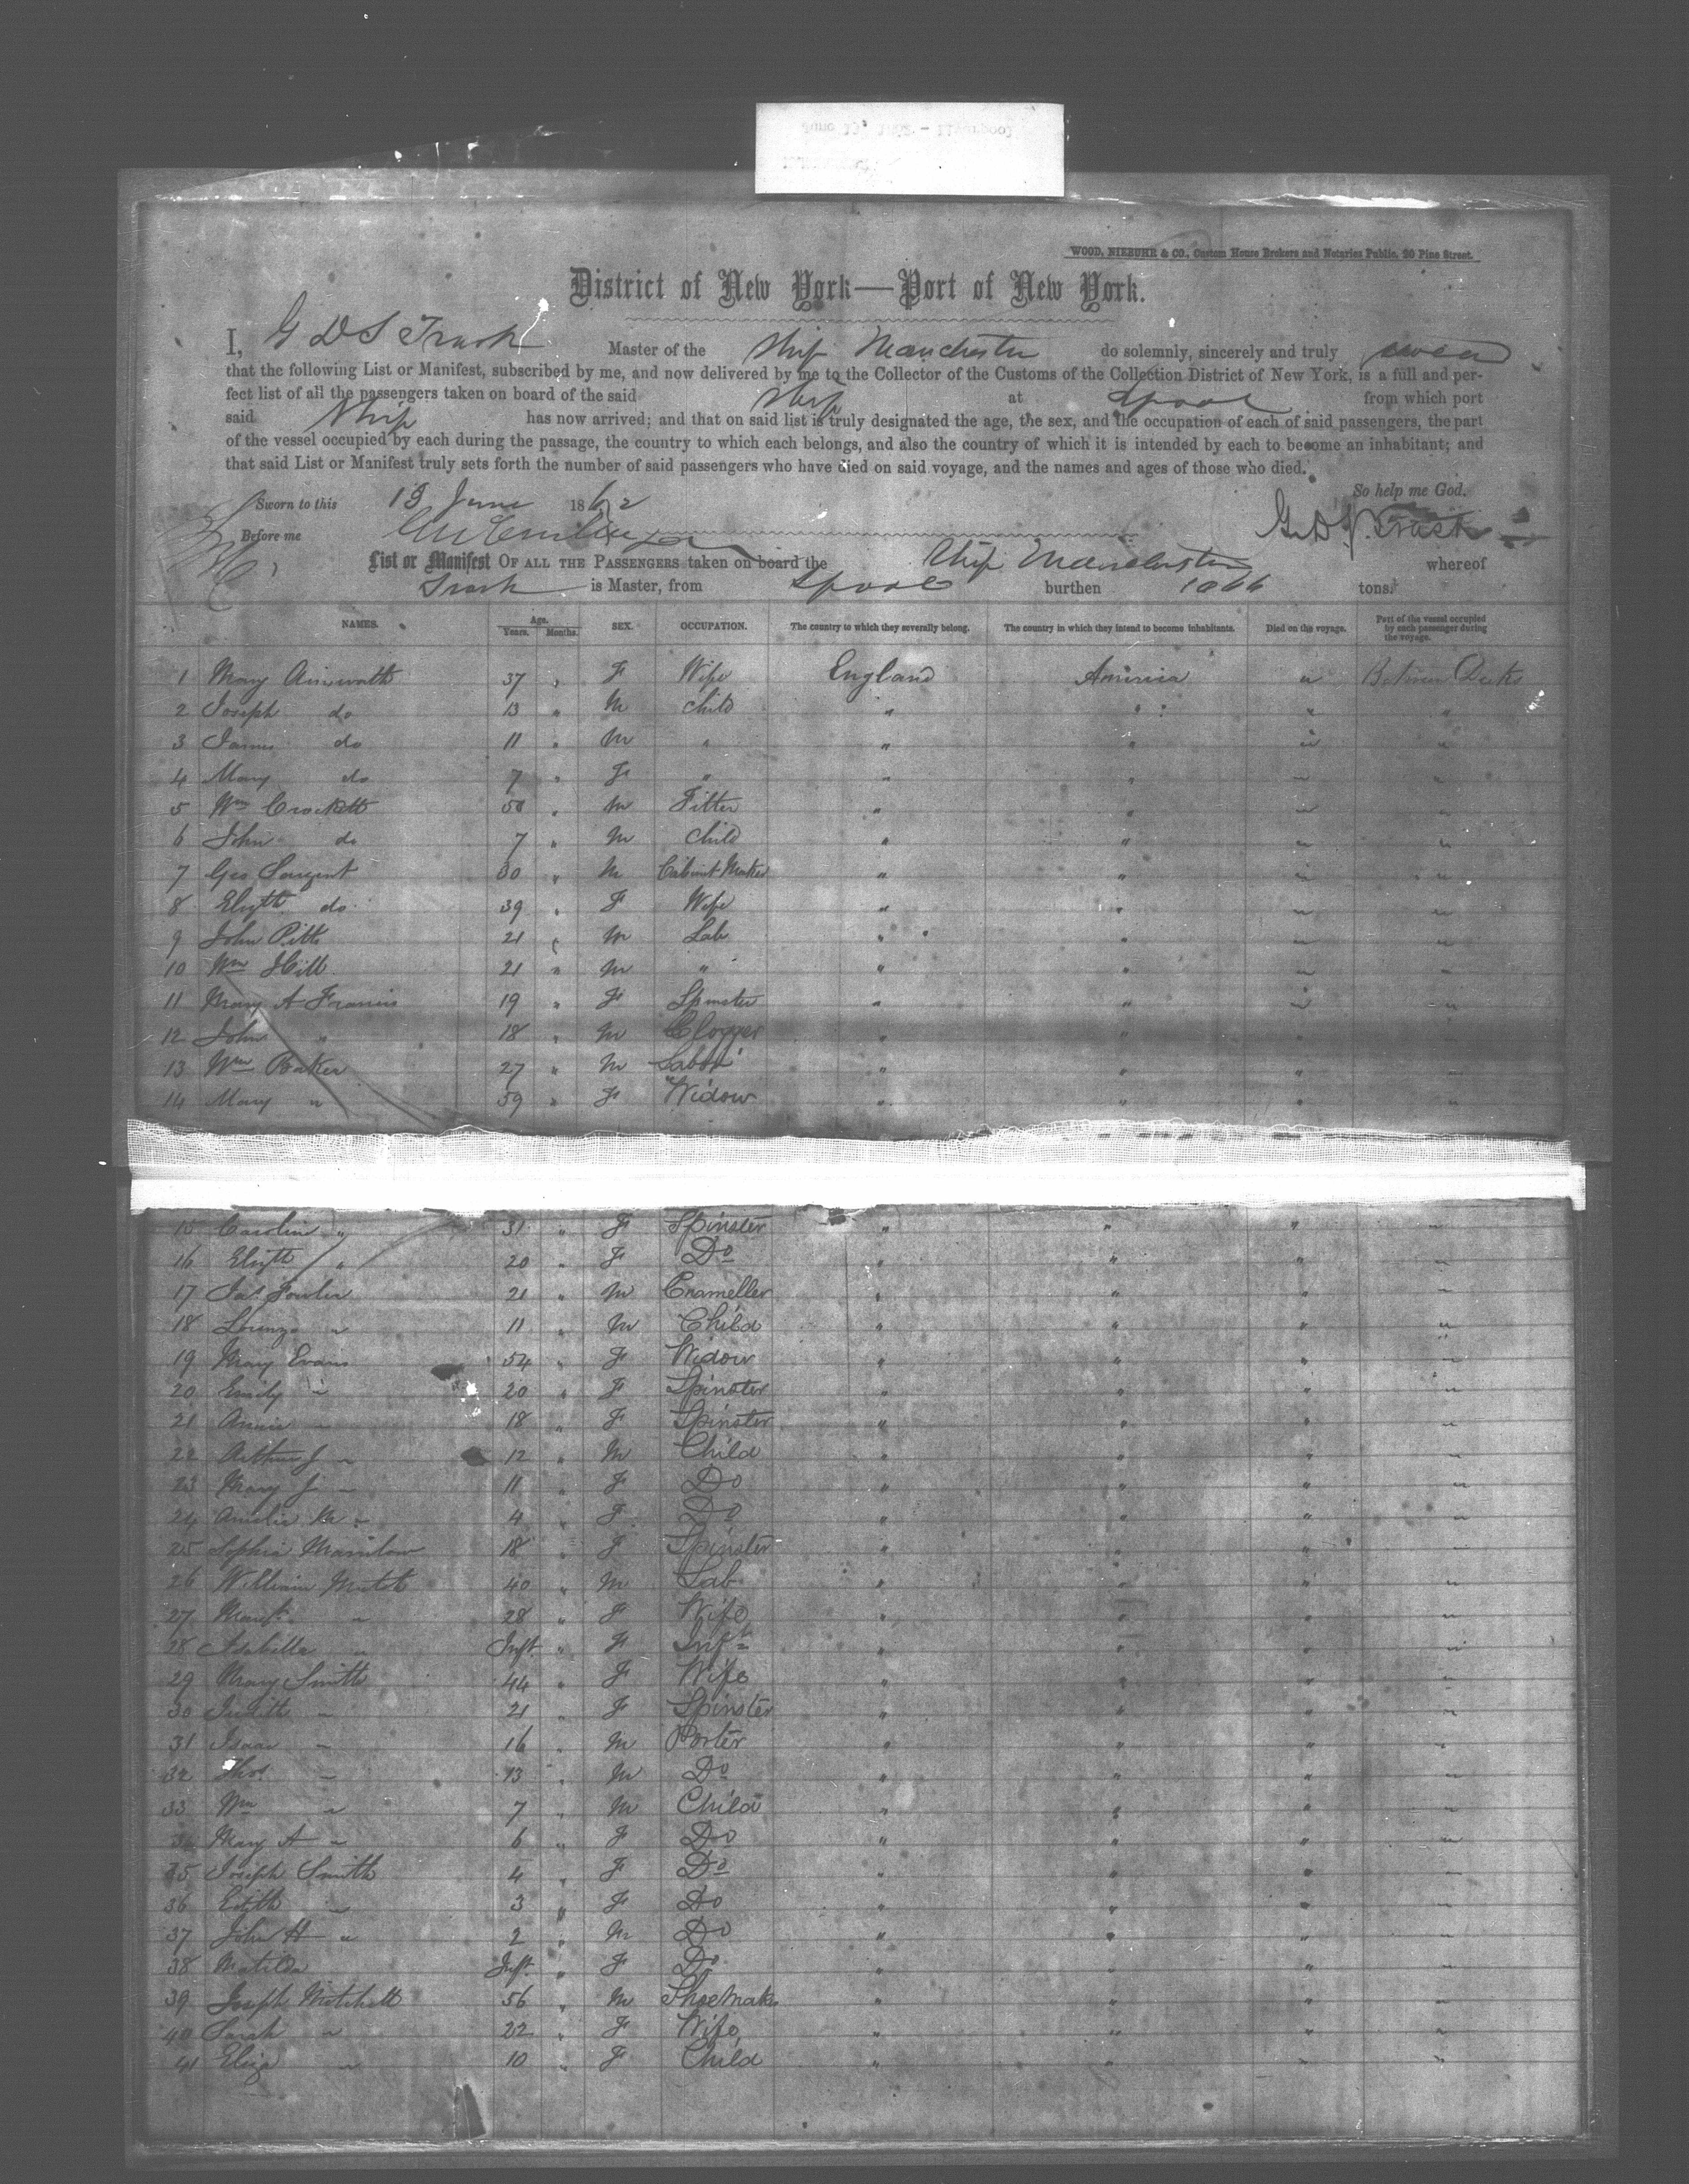 WOOD, NIEBUHR & CO., Custom House Brokers and Notaries Public, 20 Pine Street.
District of New York—Port of New York.
I, G D S Trask Master of the Ship Manchester do solemnly, sincerely and truly swear
that the following List or Manifest, subscribed by me, and now delivered by me to the Collector of the Customs of the Collection District of New York, is a full and per-
fect list of all the passengers taken on board of the said Ship at Lpool from which port
said Ship has now arrived; and that on said list is truly designated the age, the sex, and the occupation of each of said passengers, the part
of the vessel occupied by each during the passage, the country to which each belongs, and also the country of which it is intended by each to become an inhabitant; and
that said List or Manifest truly sets forth the number of said passengers who have died on said voyage, and the names and ages of those who died.
So help me God.
Sworn to this 13 June 1862
G. D. S. Trask
Before me
List or Manifest OF ALL THE PASSENGERS taken on board the Ship Manchester whereof
Trask is Master, from Lpool burthen 1066 tons.
NAMES. Age. Years. Months. SEX. OCCUPATION. The country to which they severally belong. The country in which they intend to become inhabitants. Died on the voyage. Part of the vessel occupied by each passenger during the voyage.
1 Mary Ainsworth 37 " F Wife England America " Between Decks
2 Joseph do 13 " M Child " " " "
3 James do 11 " M " " " " "
4 Mary do 7 " F " " " " "
5 Wm Crockett 50 " M Fitter " " " "
6 John do 7 " M Child " " " "
7 Geo Sargent 30 " M Cabinet Maker " " " "
8 Elizth do 39 " F Wife " " " "
9 John Pitt 21 " M Lab " " " "
10 Wm Hill 21 " M " " " " "
11 Mary A Francis 19 " F Spinster " " " "
12 John " 18 " M Clogger " " " "
13 Wm Baker 27 " M Labor " " " "
14 Mary " 59 " F Widow " " " "
15 Caroline " 31 " F Spinster " " " "
16 Elizth " 20 " F Do " " " "
17 Jas Fowler 21 " M Enameller " " " "
18 Lorenzo " 11 " M Child " " " "
19 Mary Evans 54 " F Widow " " " "
20 Emily " 20 " F Spinster " " " "
21 Annie " 18 " F Spinster " " " "
22 Arthur J " 12 " M Child " " " "
23 Mary J " 11 " F Do " " " "
24 Amelia M " 4 " F Do " " " "
25 Sophia 18 " F Spinster " " " "
26 William 40 " M Lab " " " "
27 Margt " 28 " F Wife " " " "
28 Isabella " Inft " F Inft " " " "
29 Mary Smith 44 " F Wife " " " "
30 Judith " 21 " F Spinster " " " "
31 Isaac " 16 " M Porter " " " "
32 Thos " 13 " M Do " " " "
33 Wm " 7 " M Child " " " "
34 Mary A " 6 " F Do " " " "
35 Joseph Smith 4 " F Do " " " "
36 Edith " 3 " F Do " " " "
37 John H " 2 " M Do " " " "
38 Matilda Inft " F Do " " " "
39 Joseph Mitchell 56 " M Shoemaker " " " "
40 Sarah " 22 " F Wife " " " "
41 Eliza " 10 " F Child " " " "